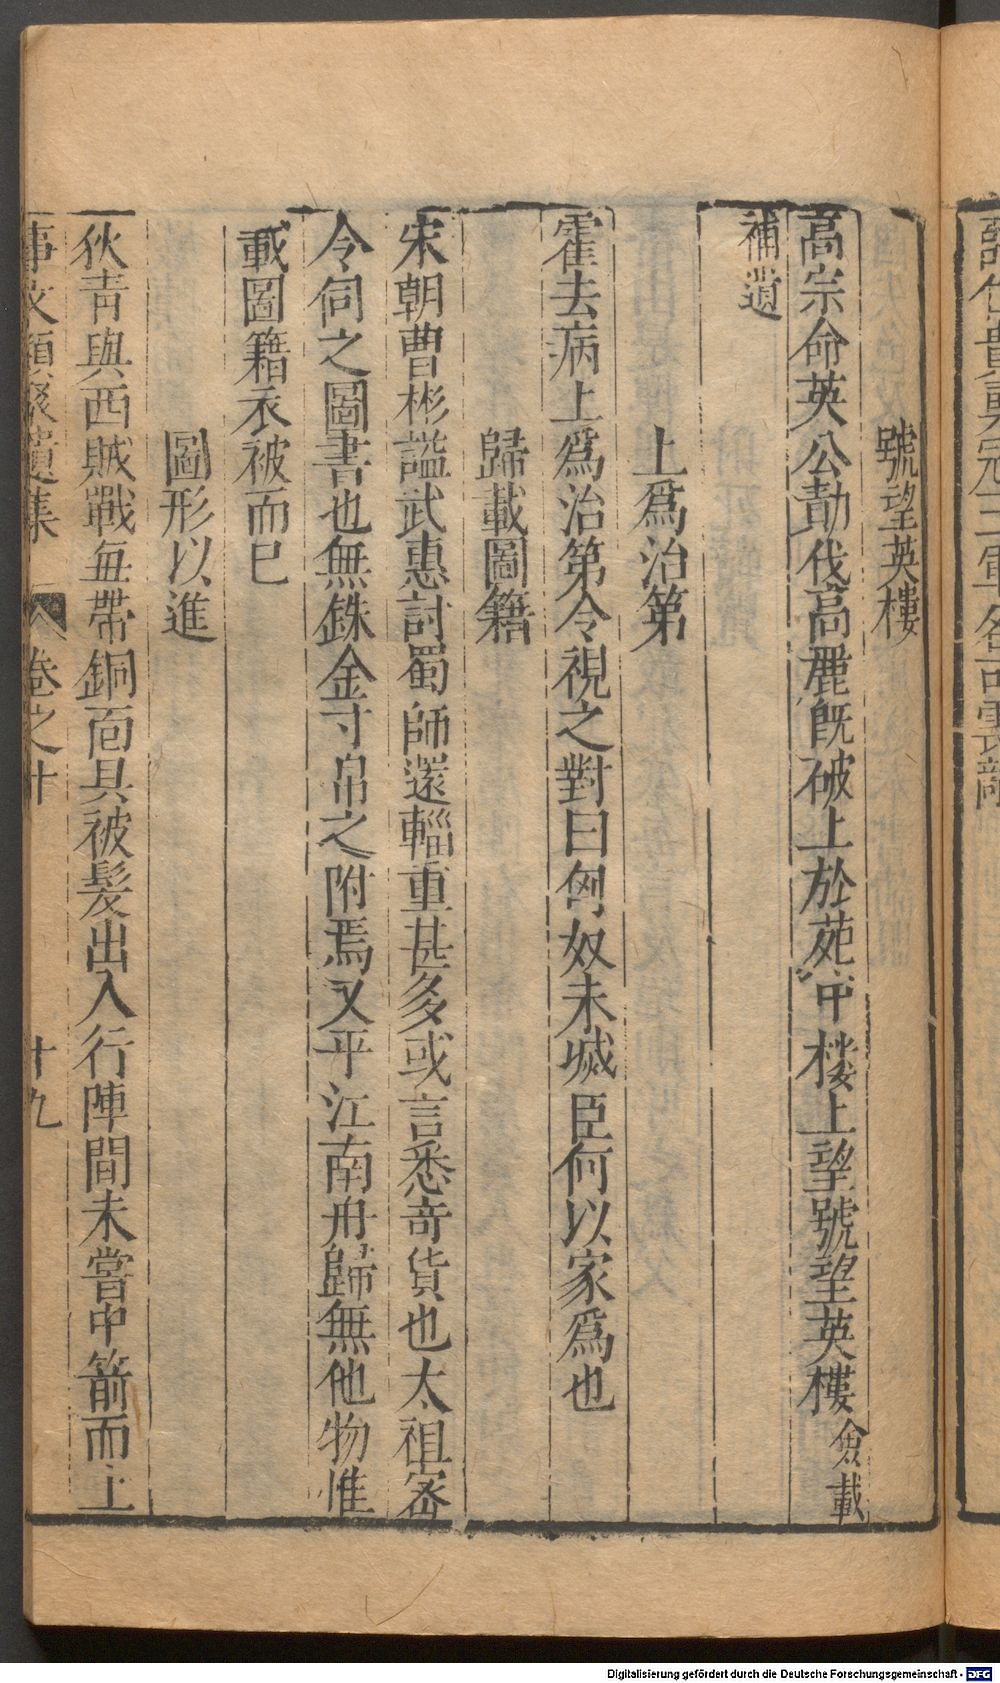 號望英樓
高宗命英公勣伐高麗既破上於苑中樓上望號望英樓僉載
補遺
上爲治第
霍去病上爲治第令視之對曰匈奴未滅臣何以家爲也
歸載圖籍
宋朝曹彬謚武惠討蜀師還輜重甚多或言悉竒貨也太祖密
令伺之圖書也無銖金寸帛之附焉又平江南舟歸無他物惟
載圖籍衣被而巳
圖形以進
狄青與西賊戰每帶銅面具被髮出入行陣間未嘗中箭而上
事文類聚遺集 卷之十 十九
Digitalisierung gefördert durch die Deutsche Forschungsgemeinschaft - DFG